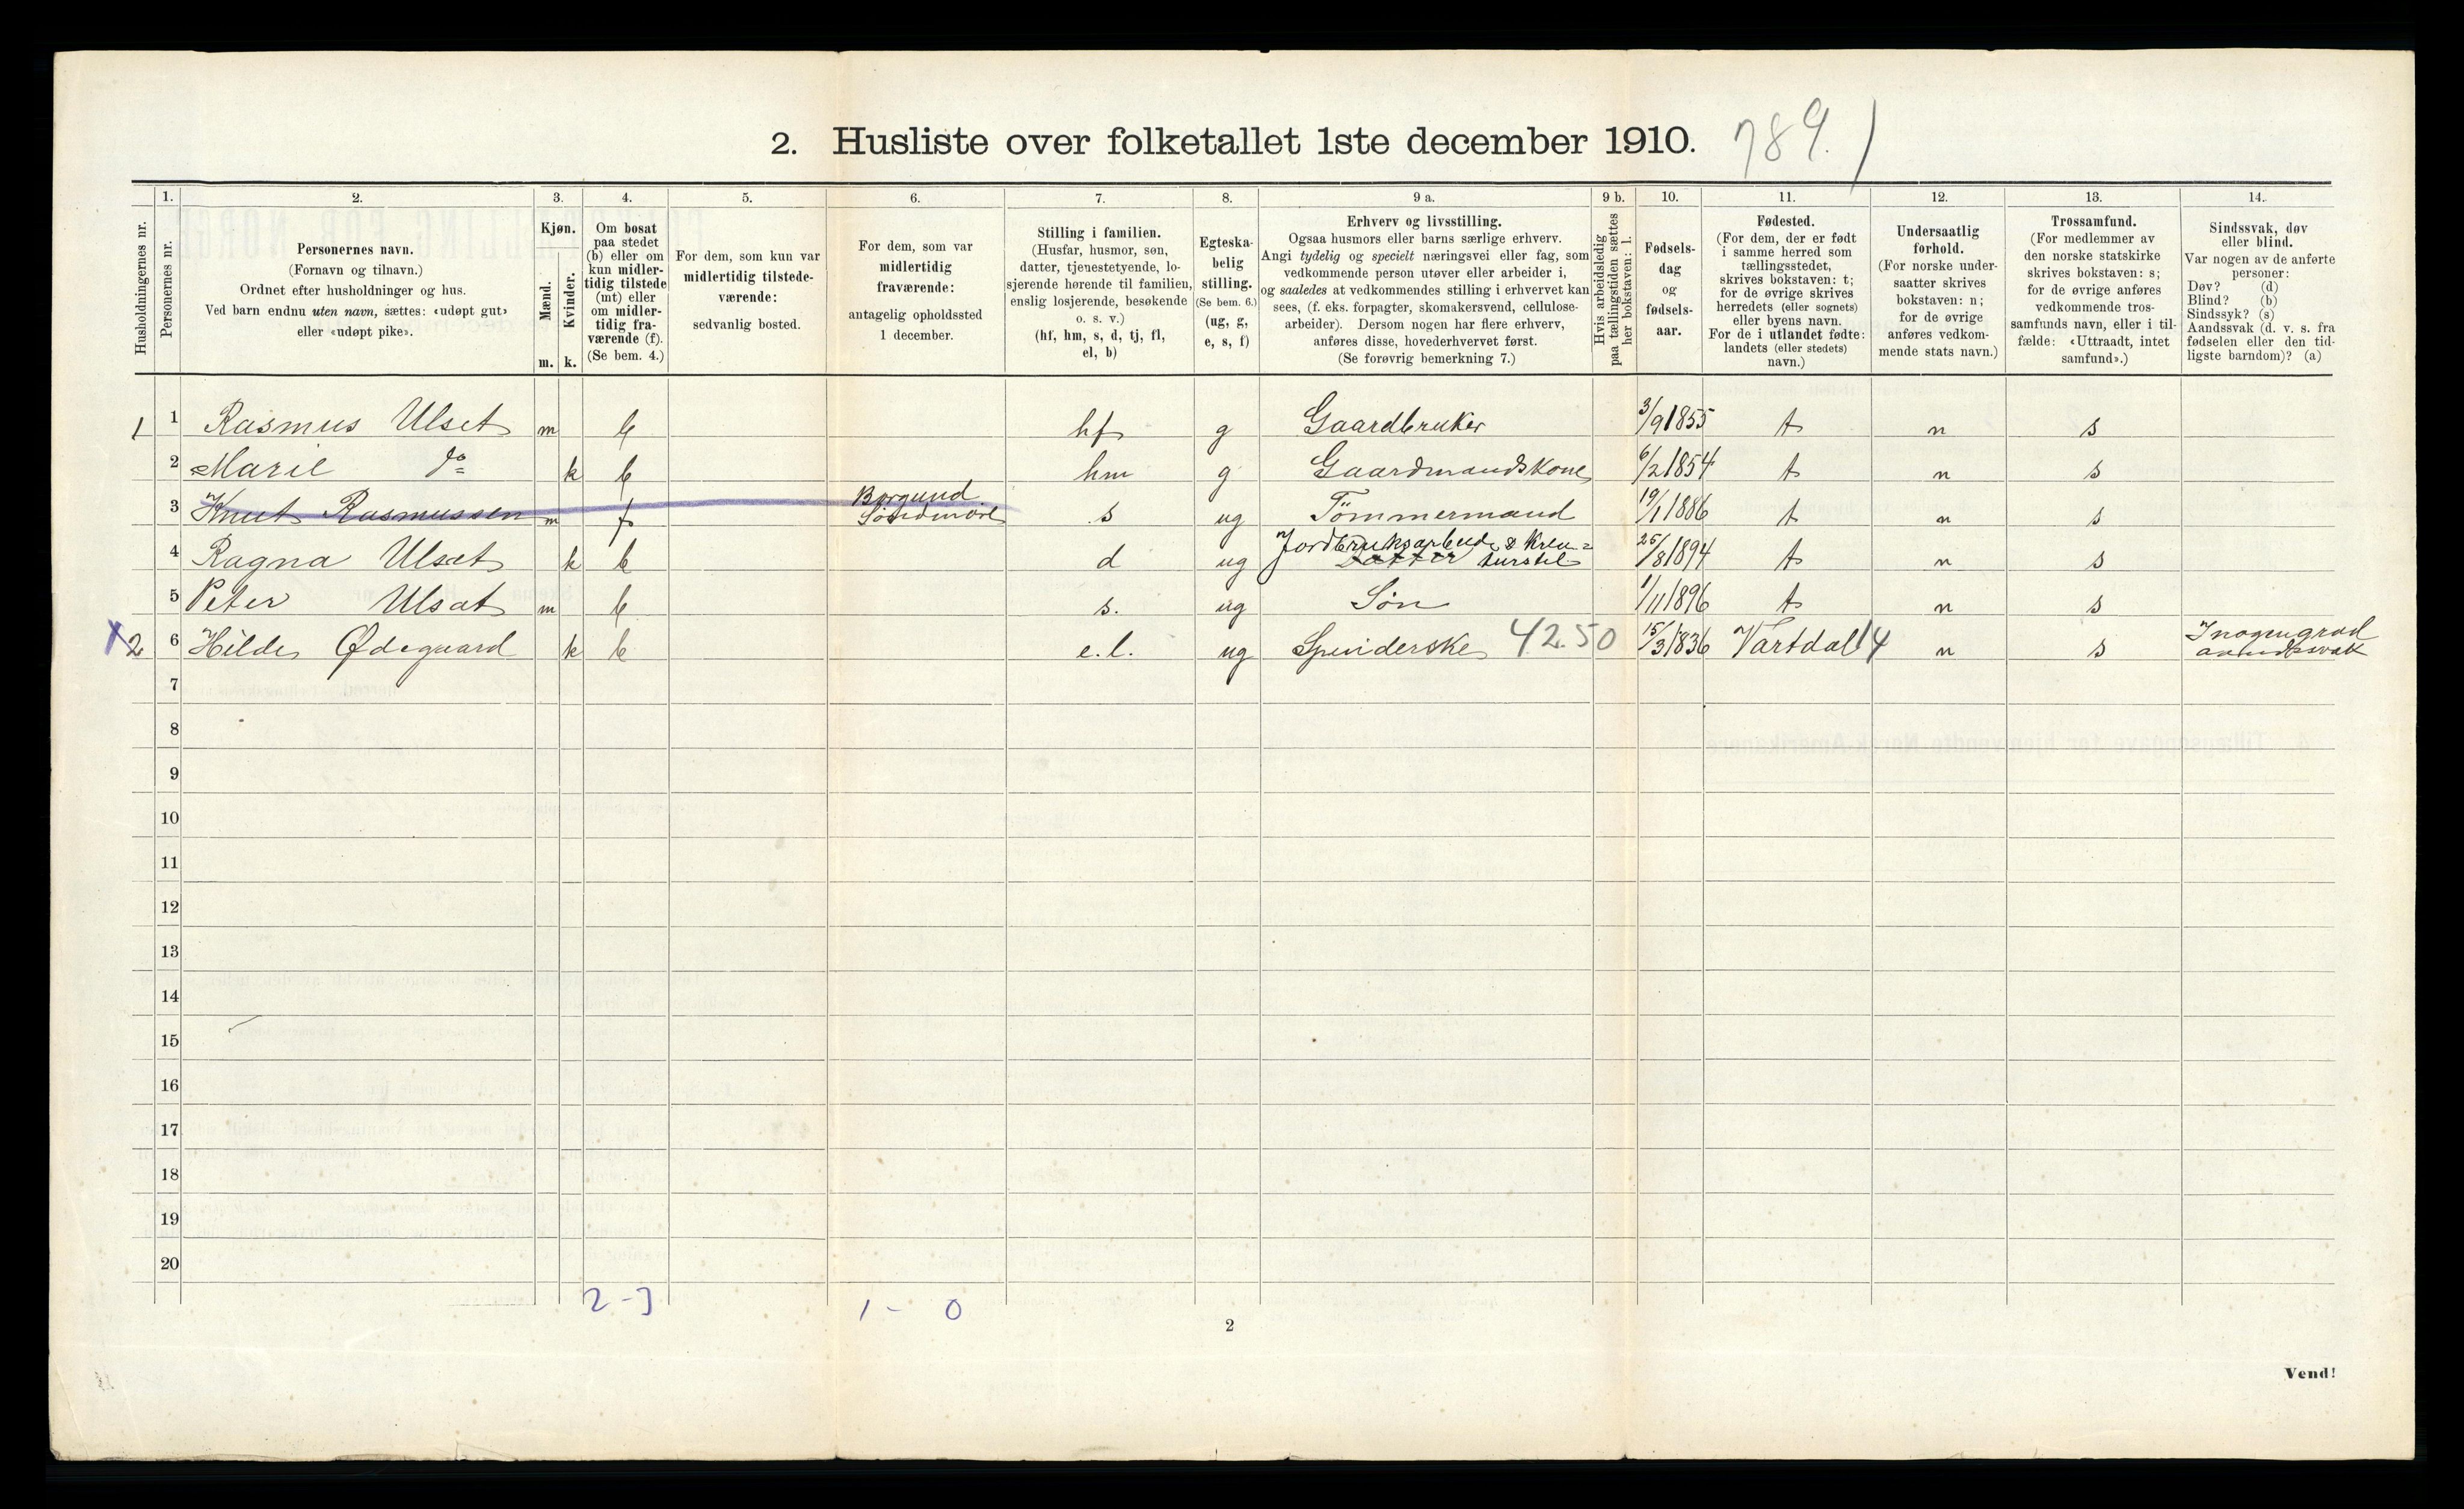 2. Husliste over folketallet 1ste december 1910. 789. 1
Husholdningernes nr.
1. Personernes nr.
2. Personernes navn.
(Fornavn og tilnavn.)
Ordnet efter husholdninger og hus.
Ved barn endnu uten navn, sættes: «udøpt gut»
eller «udøpt pike».
3. Kjøn.
Mænd. m.
Kvinder. k.
4. Om bosat
paa stedet
(b) eller om
kun midler-
tidig tilstede
(mt) eller
om midler-
tidig fra-
værende (f).
(Se bem. 4.)
5. For dem, som kun var
midlertidig tilstede-
værende:
sedvanlig bosted.
6. For dem, som var
midlertidig
fraværende:
antagelig opholdssted
1 december.
7. Stilling i familien.
(Husfar, husmor, søn,
datter, tjenestetyende, lo-
sjerende hørende til familien,
enslig losjerende, besøkende
o. s. v.)
(hf, hm, s, d, tj, fl,
el, b)
8. Egteska-
belig
stilling.
(Se bem. 6.)
(ug, g,
e, s, f)
9 a. Erhverv og livsstilling.
Ogsaa husmors eller barns særlige erhverv.
Angi tydelig og specielt næringsvei eller fag, som
vedkommende person utøver eller arbeider i,
og saaledes at vedkommendes stilling i erhvervet kan
sees, (f. eks. forpagter, skomakersvend, cellulose-
arbeider). Dersom nogen har flere erhverv,
anføres disse, hovederhvervet først.
(Se forøvrig bemerkning 7.)
9 b. Hvis arbeidsledig
paa tællingstiden sættes
her bokstaven: l.
10. Fødsels-
dag
og
fødsels-
aar.
11. Fødested.
(For dem, der er født
i samme herred som
tællingsstedet,
skrives bokstaven: t;
for de øvrige skrives
herredets (eller sognets)
eller byens navn.
For de i utlandet fødte:
landets (eller stedets)
navn.)
12. Undersaatlig
forhold.
(For norske under-
saatter skrives
bokstaven: n;
for de øvrige
anføres vedkom-
mende stats navn.)
13. Trossamfund.
(For medlemmer av
den norske statskirke
skrives bokstaven: s;
for de øvrige anføres
vedkommende tros-
samfunds navn, eller i til-
fælde: «Uttraadt, intet
samfund».)
14. Sindssvak, døv
eller blind.
Var nogen av de anførte
personer:
Døv? (d)
Blind? (b)
Sindssyk? (s)
Aandssvak (d. v. s. fra
fødselen eller den tid-
ligste barndom)? (a)
1 1 Rasmus Ulset m b hf g Gaardbruker 3/9 1855 t n s
2 Marie do k b hm g Gaardmandskone 6/2 1854 t n s
3 Knut Rasmussen m f Borgund Søndmøre s ug Tömmermand 19/1 1886 t n s
4 Ragna Ulset k b d ug Jordbruksarbeide & Krea- Datter turstel 25/8 1894 t n s
5 Peter Ulset m b s. ug Søn 1/11 1896 t n s
X 2 6 Hilde Ødegaard k b e.l. ug Spinderske 42.50 15/3 1836 Vartdal 14 n s I nogen grad aandssvak
7
8
9
10
11
12
13
14
15
16
17
18
19
20
2-3 1 - 0
2
Vend!